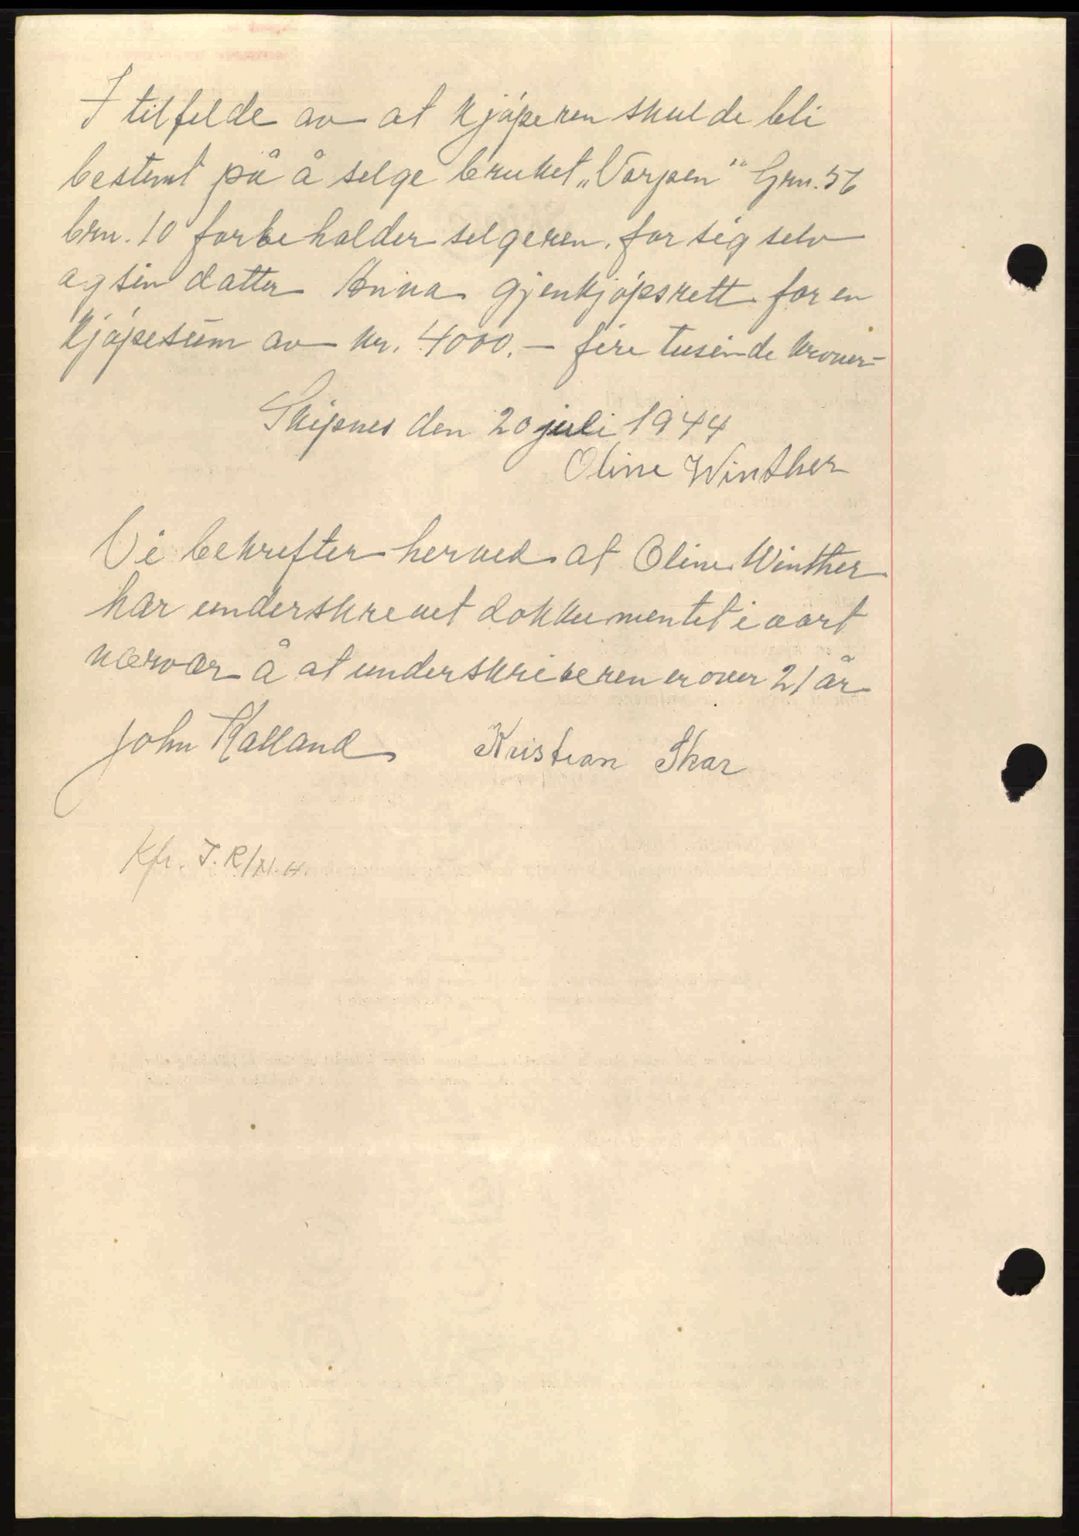 I tilfelde av at kjøperen skulde bli
bestemt på å selge bruket „Varpen" Grn. 56
brn. 10 forbeholder selgeren, for sig selv
og sin datter Anna gjenkjøpsrett for en
kjøpesum av kr. 4000.– fire tusinde kroner–
Skipnes den 20 juli 1944
Oline Winther
Vi bekrefter herved at Oline Winther
har underskrevet dokkumentet i vort
nærvær å at underskriveren er over 21 år
John Kalland Kristian Skar
Kfr. J.R/N.H.